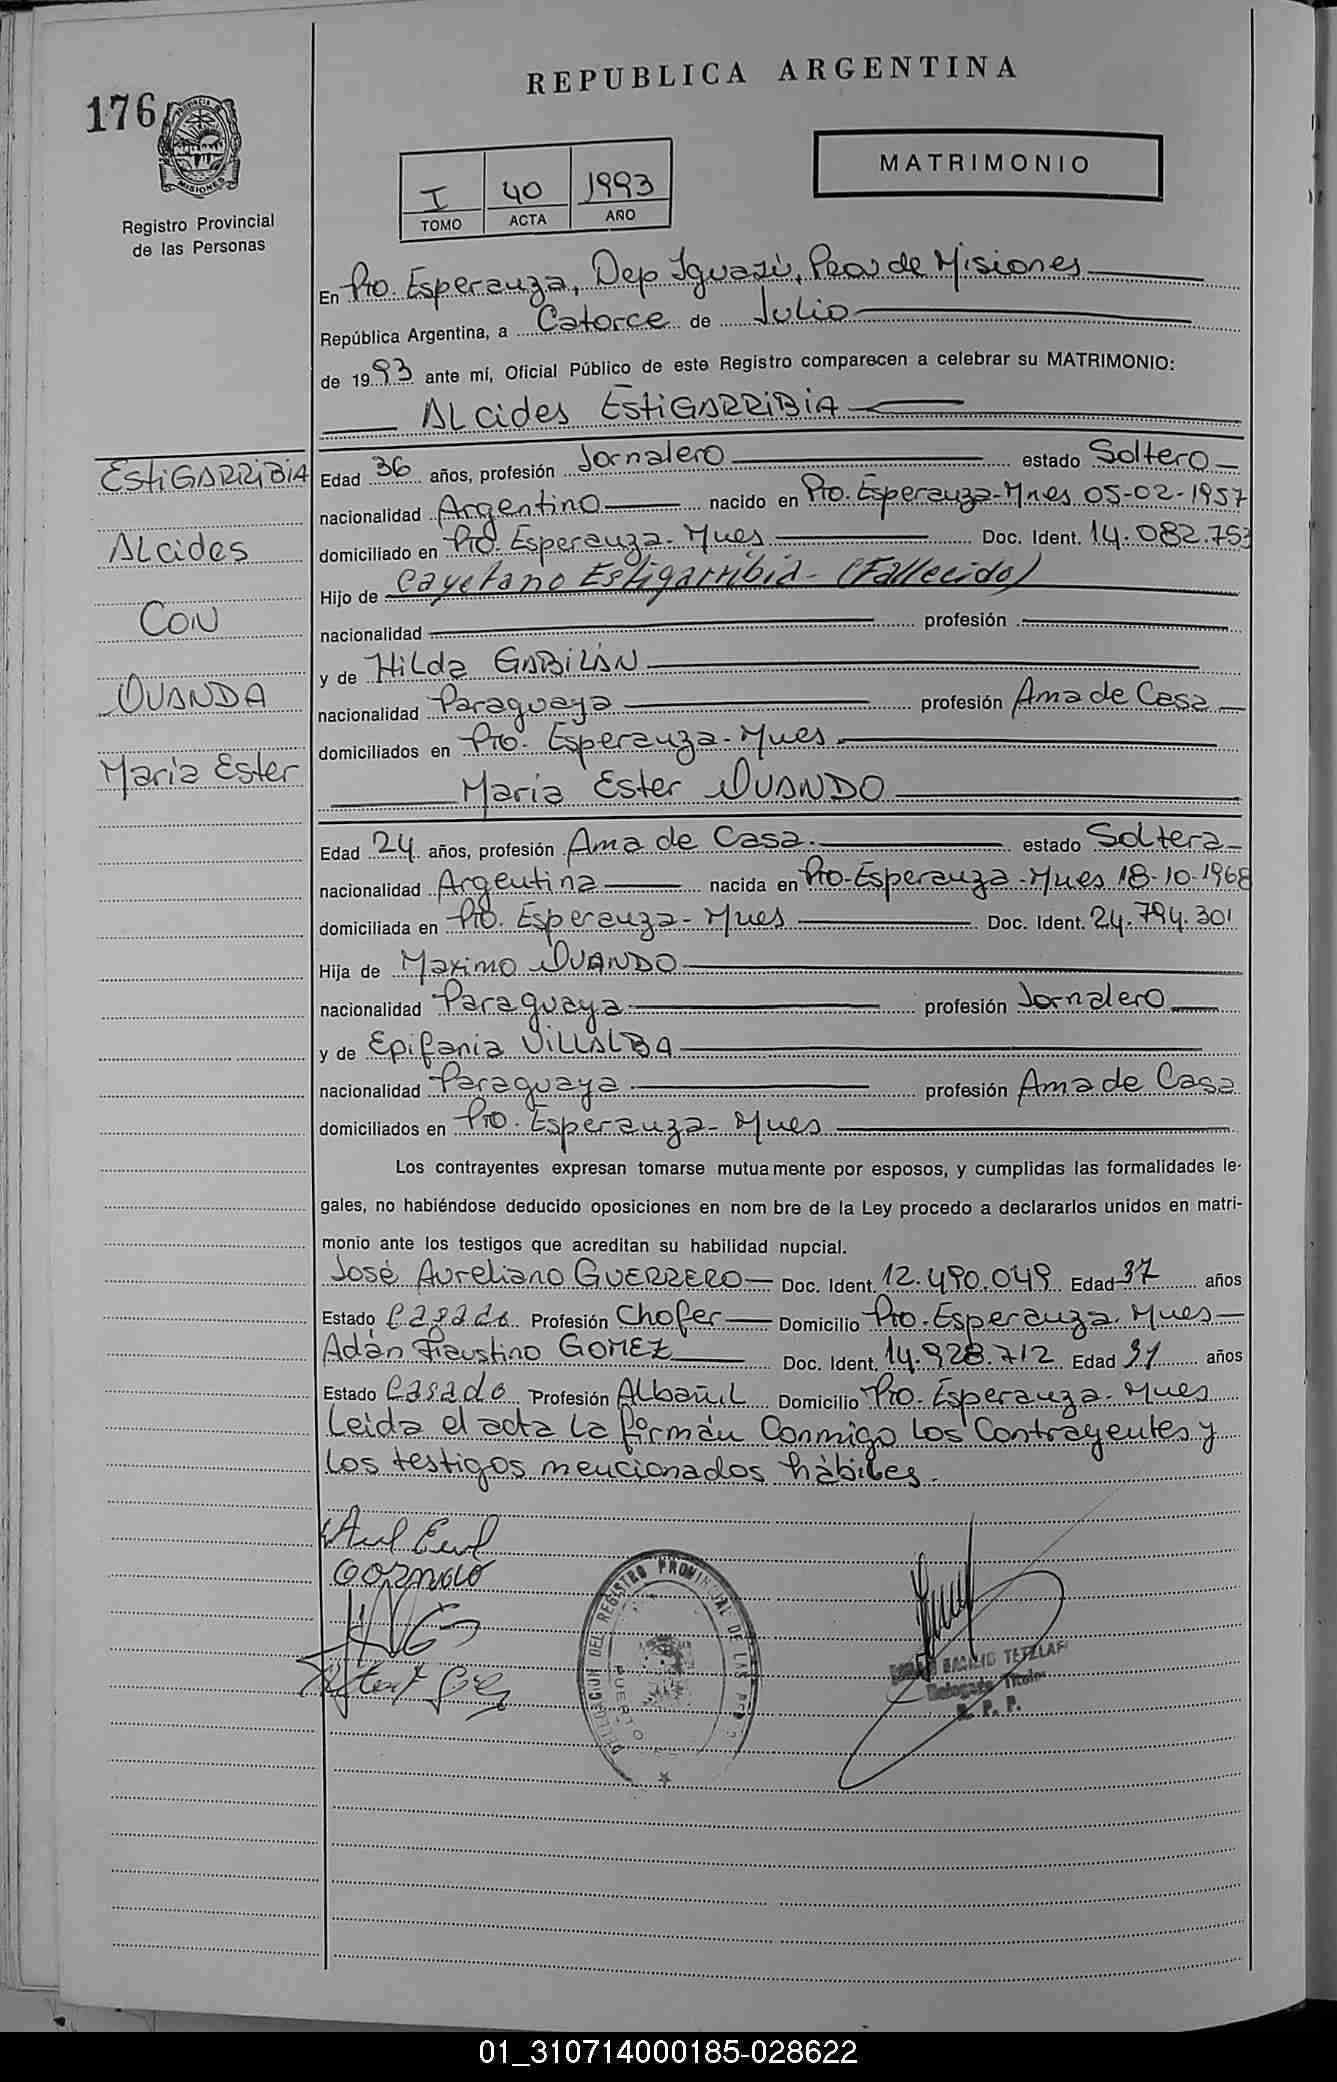 REPUBLICA ARGENTINA
176
PROVINCIA DE
MISIONES
Registro Provincial
de las Personas
MATRIMONIO
I 40 1993
TOMO ACTA AÑO
En Pto. Esperanza, Dep Iguazú, Pcia de Misiones
República Argentina, a Catorce de Julio
de 1993 ante mí, Oficial Público de este Registro comparecen a celebrar su MATRIMONIO:
ALcides EstiGARRiBiA
EstiGARRiBiA
ALcides
CON
OVANDA
Maria Ester
Edad 36 años, profesión Jornalero estado Soltero
nacionalidad Argentino nacido en Pto. Esperanza-Mnes 05-02-1957
domiciliado en Pto. Esperanza-Mnes Doc. Ident. 14.082.753
Hijo de Cayetano Estigarribia-(Fallecido)
nacionalidad profesión
y de Hilda GABILÁN
nacionalidad Paraguaya profesión Ama de Casa
domiciliados en Pto. Esperanza-Mnes
Maria Ester OVANDO
Edad 24 años, profesión Ama de Casa. estado Soltera
nacionalidad Argentina nacida en Pto-Esperanza-Mnes 18-10-1968
domiciliada en Pto. Esperanza-Mnes Doc. Ident. 24.794.301
Hija de Maximo OVANDO
nacionalidad Paraguaya profesión Jornalero
y de Epifania VILLALBA
nacionalidad Paraguaya profesión Ama de Casa
domiciliados en Pto. Esperanza-Mnes
Los contrayentes expresan tomarse mutuamente por esposos, y cumplidas las formalidades le-
gales, no habiéndose deducido oposiciones en nom bre de la Ley procedo a declararlos unidos en matri-
monio ante los testigos que acreditan su habilidad nupcial.
José Aureliano GUERRERO Doc. Ident. 12.490.049 Edad 37 años
Estado Casado Profesión Chofer Domicilio Pto. Esperanza. Mnes
Adán Faustino GOMEZ Doc. Ident. 14.928.712 Edad 31 años
Estado Casado Profesión Albañil Domicilio Pto. Esperanza. Mnes
Leida el acta la firmán Conmigo los Contrayentes y
los testigos mencionados hábiles.
DELEGACION DEL REGISTRO PROVINCIAL DE LAS
PUERTO
EMILIO TETZLAF
Delegado Titular
R. P. P.
01_310714000185-028622